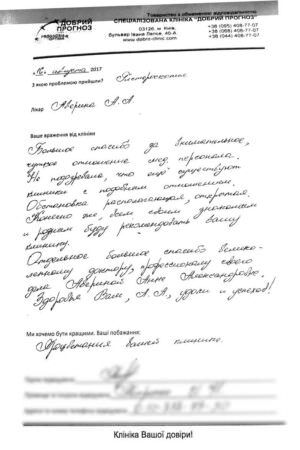 ДОБРИЙ
ПРОГНОЗ
Товариство з обмеженою відповідальністю
СПЕЦІАЛІЗОВАНА КЛІНІКА "ДОБРИЙ ПРОГНОЗ"
03126, м. Київ,
бульвар Івана Лепсе,
www.dobro-clinic.com
+38 (044) 406-77-07
августа 2017
З якою проблемою прийшли? Гистероскопия
Лікар Аверина А.А
Ваше враження від клініки
Большое спасибо за внимательное,
чуткое отношение мед персонала.
Не подозревала, что ещё существуют
клиники с подобным отношением.
Обстановка располагающая, опрятная.
Конечно же, всем своим знакомым
и родным буду рекомендовать вашу
клинику.
Отдельное большое спасибо велико-
лепному доктору, профессионалу своего
дела Авериной Анне Александровне.
Здоровья Вам, А.А, удачи и успехов!
Ми хочемо бути кращими. Ваші побажання:
Процветания вашей клинике.
Клініка Вашої довіри!